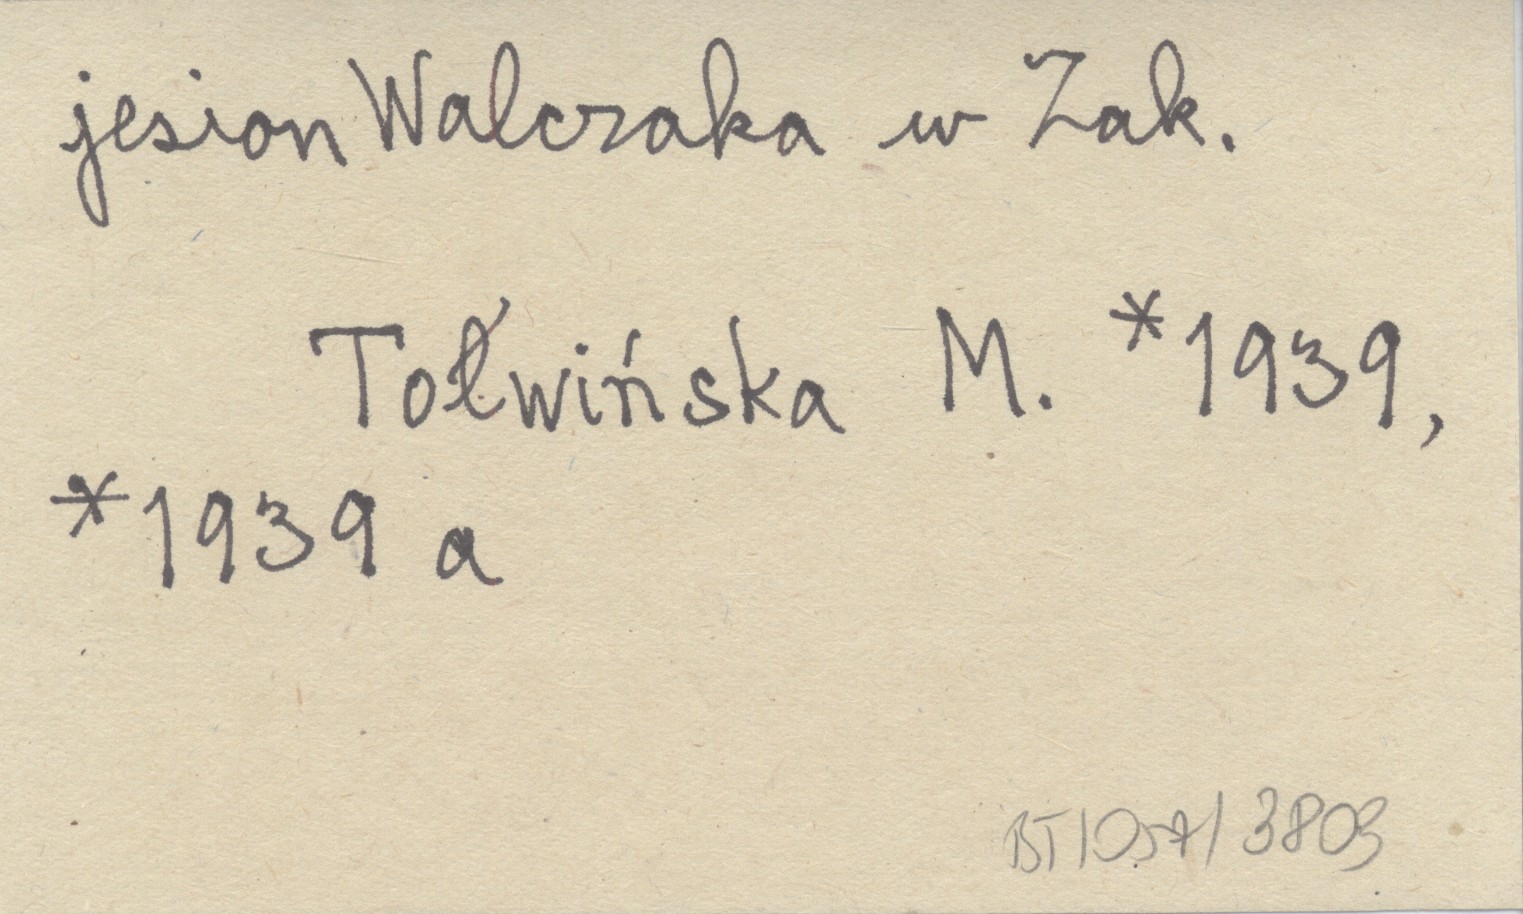 jesion Walczaka w Zak.
Tołwińska M. *1939,
*1939 a
BT/057/3803